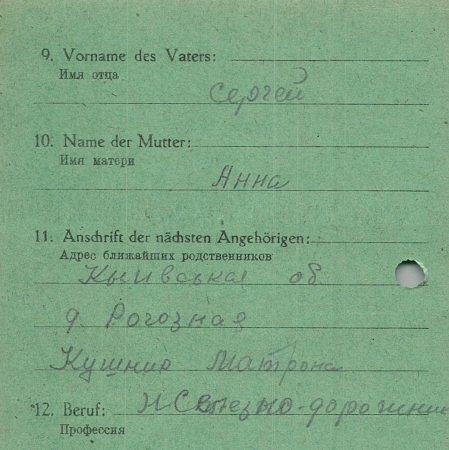 9. Vorname des Vaters:
Имя отца
Сергей
10. Name der Mutter:
Имя матери
Анна
11. Anschrift der nächsten Angehörigen:
Адрес ближайших родственников
Кыивськая об.
д Рогозная
Кушнир Матрона
12. Beruf:
Профессия